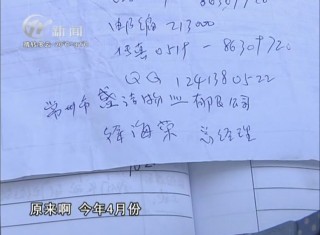 新闻
邮编 213000
传真 0519-86309720
QQ 1241380522
常州市盛洁物业有限公司
徐海荣 总经理
原来啊 今年4月份